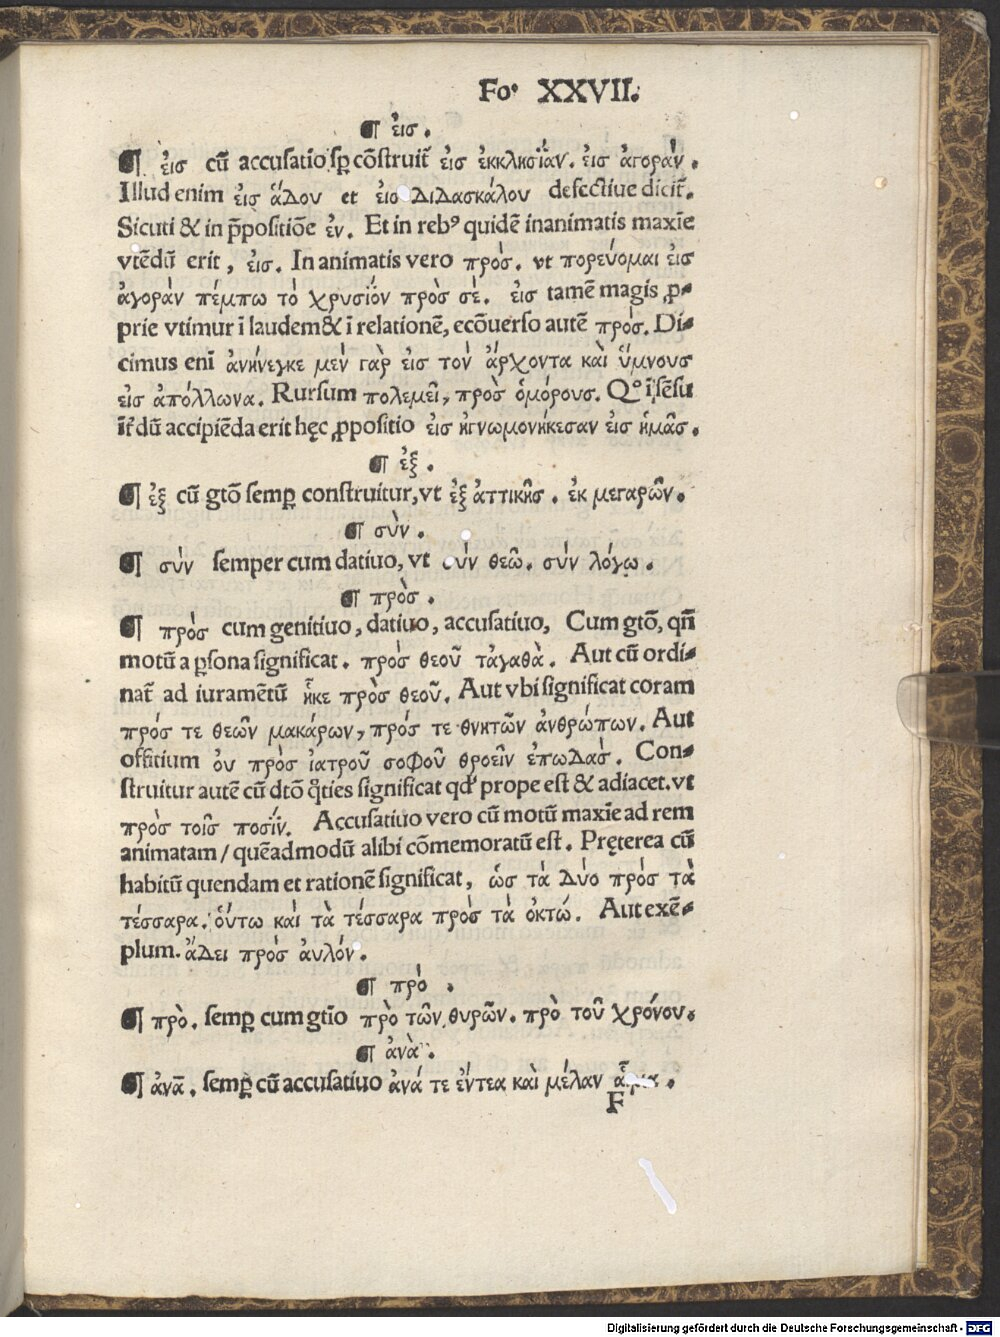 Fo⁹ XXVII.
¶ ἐισ.
¶ ἐισ cū accusatio sꝑ cōstruit᷑ ἐισ ἐκκλησίαν. ἐισ ἀγορὰν.
Illud enim ἐισ ἅδου et ἐισ διδασκάλου defectiue dicit᷑.
Sicuti & in p̄positiōe ἐν. Et in reb⁹ quidē inanimatis maxīe
vtēdū erit, ἐισ. In animatis vero πρὸσ. vt πορεύομαι ἐισ
ἀγορὰν πέμπω τὸ χρυσίον πρὸσ σὲ. ἐισ tamē magis ꝓ⸗
prie vtimur ī laudem & ī relationē, ecōuerso autē πρόσ. Di⸗
cimus enī ἀνήνεγκε μεν γαρ ἐισ τον ἄρχοντα και ὕμνουσ
ἐισ ἀπόλλωνα. Rursum πολεμεῖ, πρὸσ ὁμόρουσ. Qº ī sēsu
īt᷑dū accipiēda erit hęc ꝓpositio ἐισ ἠγνωμονήκεσαν ἐισ ἡμᾶσ.
¶ ἐξ.
¶ ἐξ cū gtō semꝑ construitur, vt ἐξ ἀττικῆσ. ἐκ μεγαρῶν.
¶ σὺν.
¶ σύν semper cum datiuo, vt σύν θεῶ. σύν λόγω.
¶ πρὸσ.
¶ πρὸσ cum genitiuo, datiuo, accusatiuo, Cum gtō, qn̄
motū a ꝑsona significat. πρόσ θεοῦ τἀγαθὰ. Aut cū ordi⸗
nat᷑ ad iuramētū ἧκε πρὸσ θεοῦ. Aut vbi significat coram
πρόσ τε θεῶν μακάρων, πρόσ τε θνητῶν ἀνθρώπων. Aut
offitium ὀυ πρὸσ ἰατροῦ σοφοῦ θροεῖν ἐπωδασ. Con⸗
struitur autē cū dtō q̄ties significat qd' prope est & adiacet. vt
πρὸσ τοῖσ ποσίν. Accusatiuo vero cū motū maxīe ad rem
animatam / quēadmodū alibi cōmemoratū est. Pręterea cū
habitū quendam et rationē significat, ὡσ τὰ δύο πρόσ τὰ
τέσσαρα. ὅυτω και τὰ τέσσαρα πρὸσ τὰ ὀκτώ. Aut exē⸗
plum. ἄδει πρόσ ἀυλόν.
¶ πρὸ .
¶ πρὸ. semꝑ cum gtīo πρὸ τῶν θυρῶν. πρὸ τοῦ χρόνου.
¶ ἀνὰ.
¶ ἀνα. semꝑ cū accusatiuo ἀνά τε ἔντεα καὶ μέλαν
F
Digitalisierung gefördert durch die Deutsche Forschungsgemeinschaft - DFG